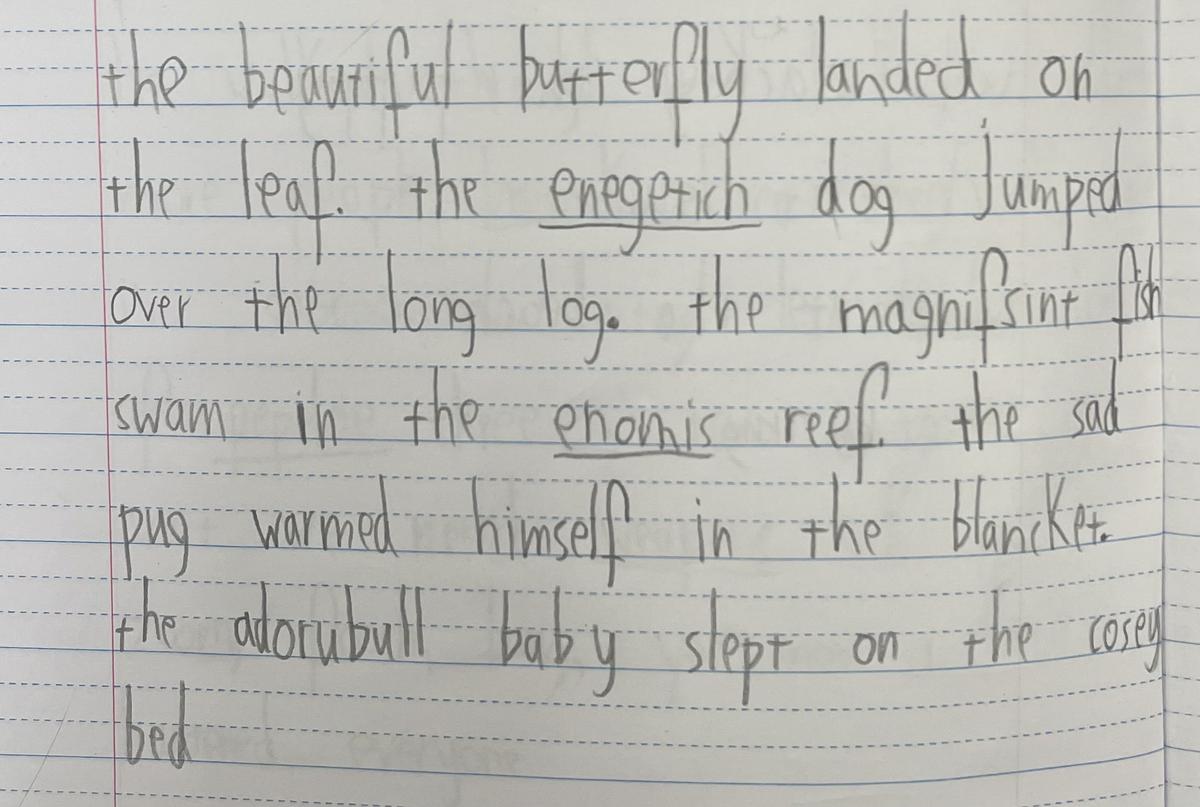 the beautiful butterfly landed on
the leaf. the enegetich dog jumped
over the long log. the magnifsint fish
swam in the enomis reef. the sad
pug warmed himself in the blancket.
the adorubull baby slept on the cosey
bed